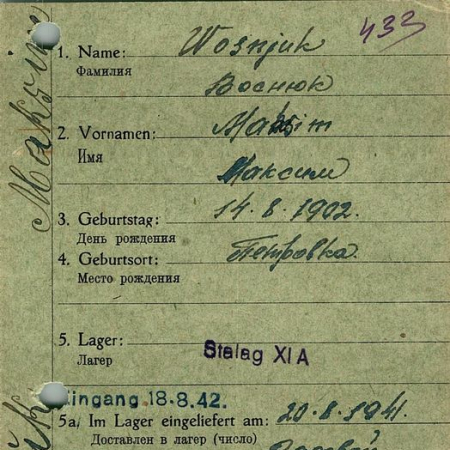 433
1. Name: Wosnjuk
Фамилия
Воснюк
2. Vornamen: Maksim
Имя
Максим
3. Geburtstag: 14.8.1902.
День рождения
4. Geburtsort: Петровка.
Место рождения
5. Lager: Stalag XI A
Лагерь
Eingang 18.8.42.
5a. Im Lager eingeliefert am: 20.8.1941.
Доставлен в лагерь (число)